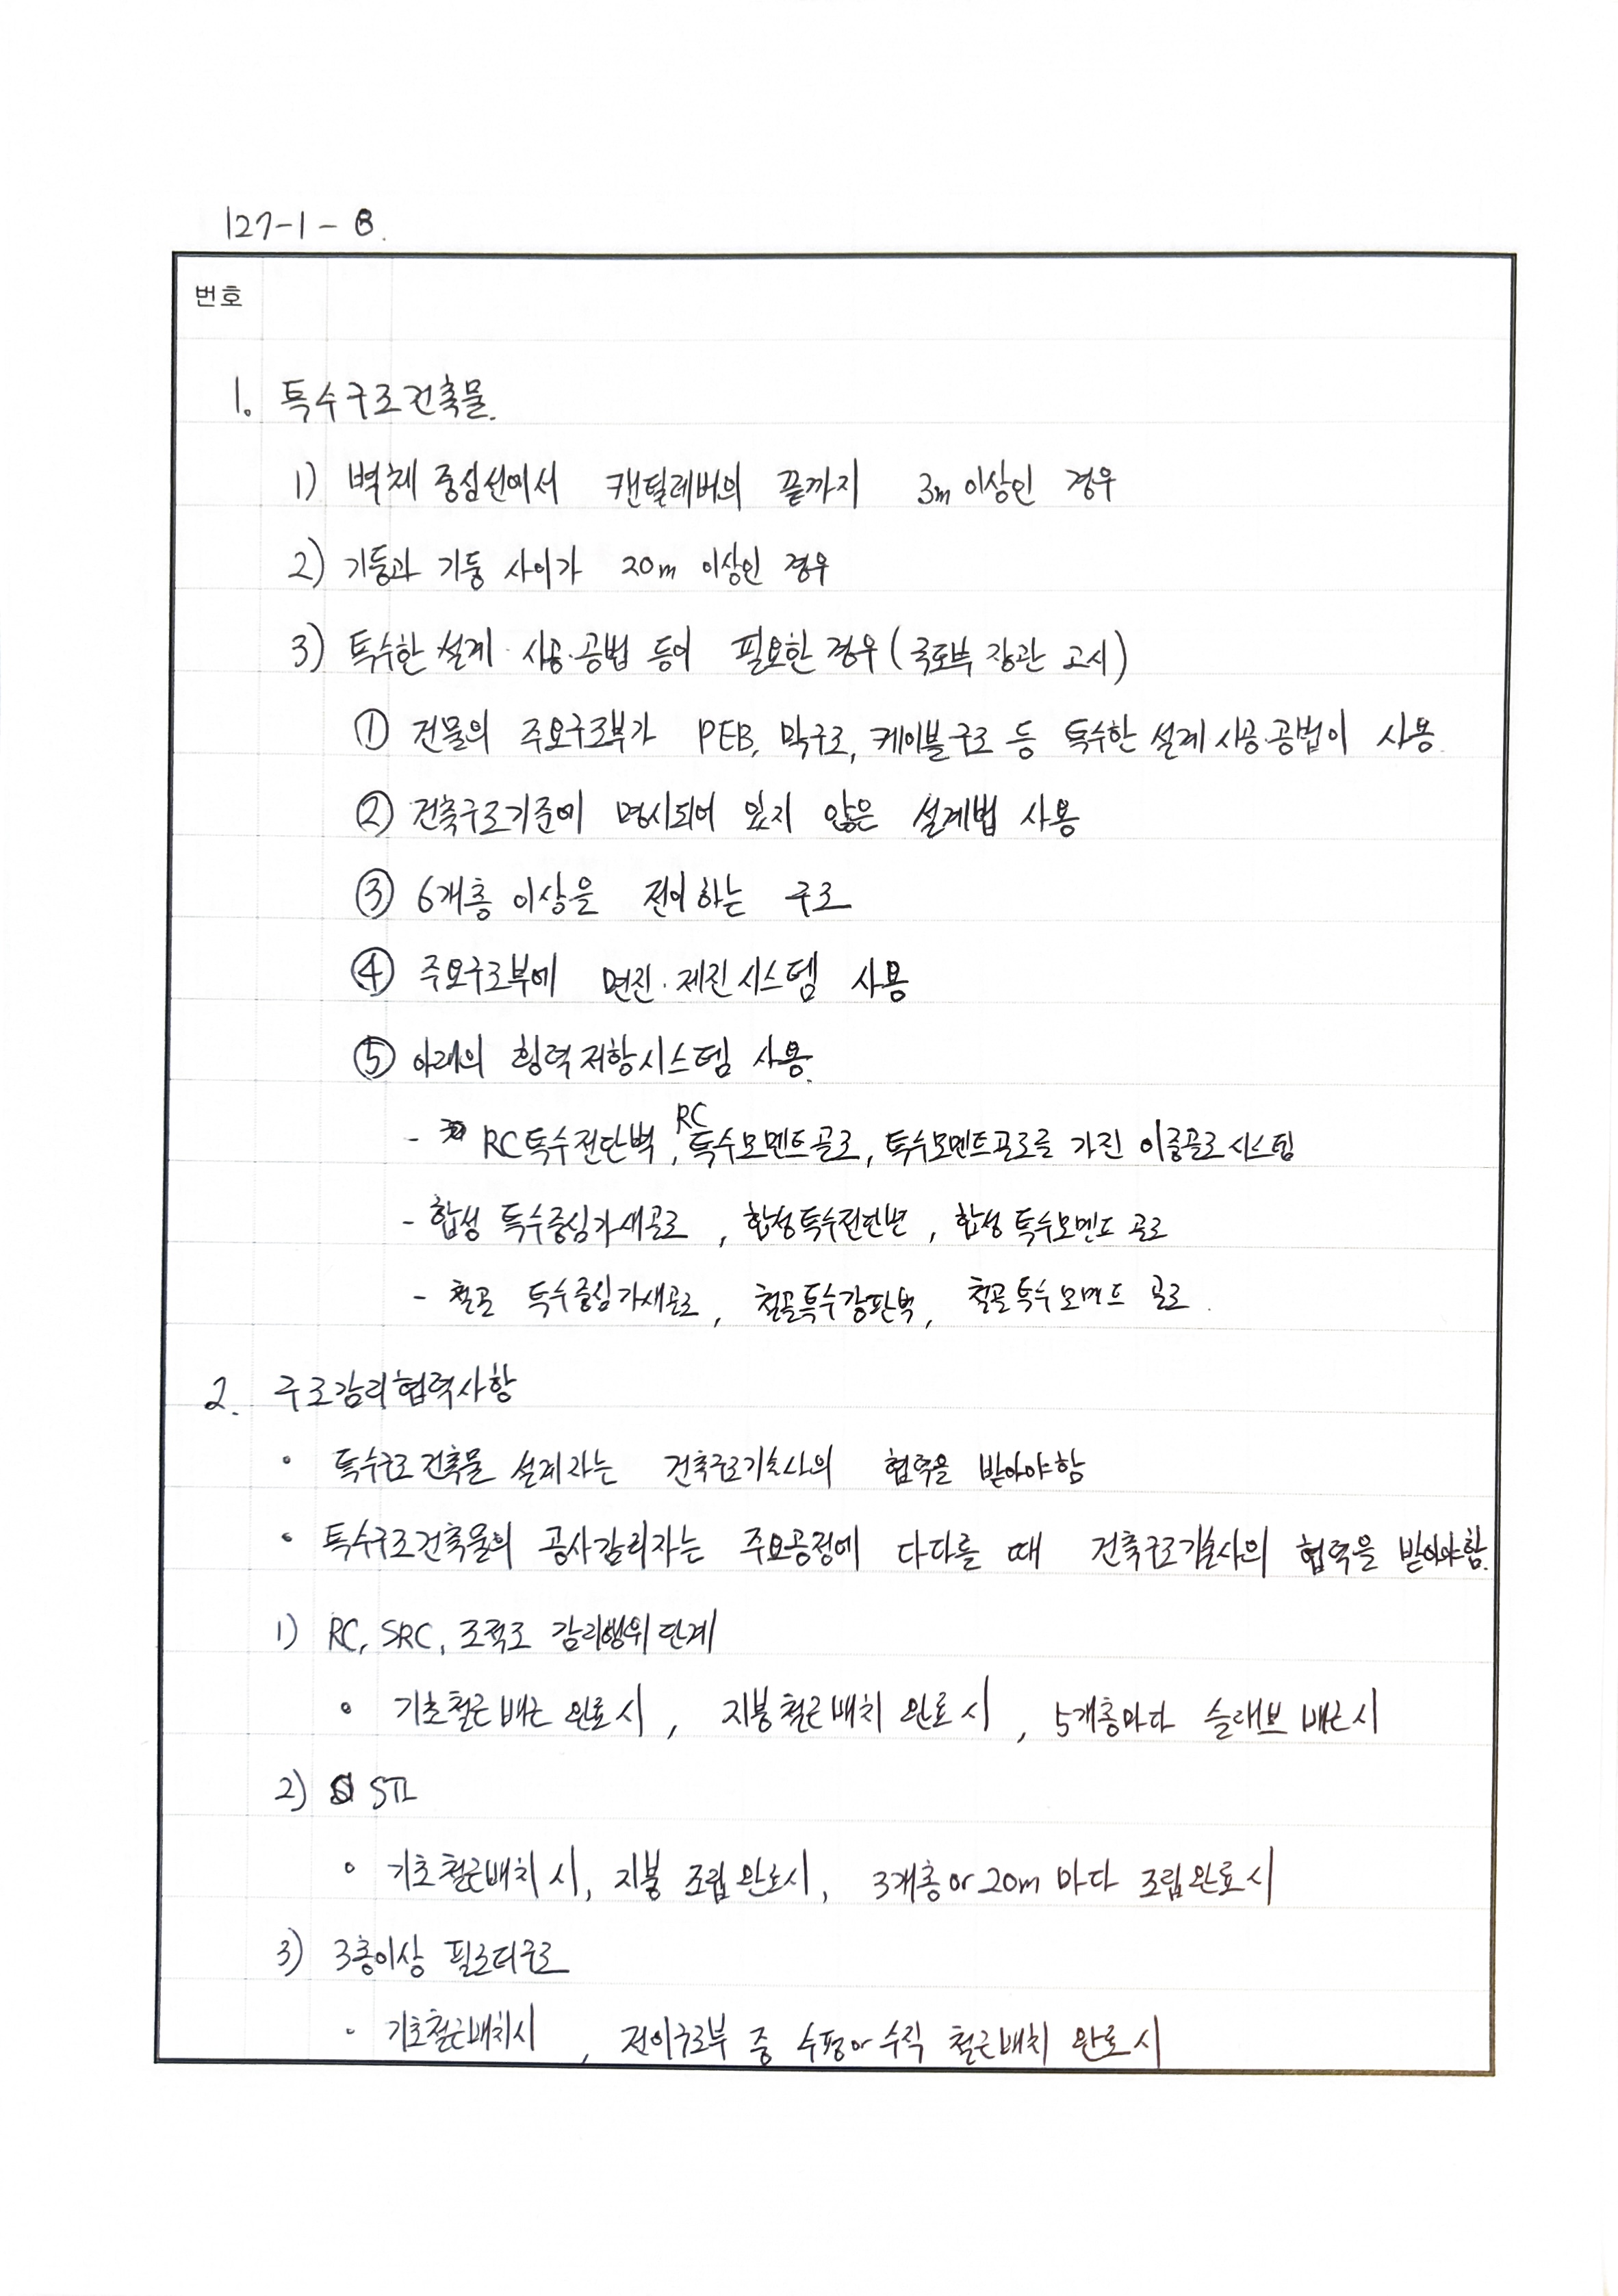 127-1-8.
번호
1. 특수구조건축물.
1) 벽체 중심선에서 캔틸레버의 끝까지 3m 이상인 경우
2) 기둥과 기둥 사이가 20m 이상인 경우
3) 특수한 설계·시공·공법 등이 필요한 경우 (국토부 장관 고시)
① 건물의 주요구조부가 PEB, 막구조, 케이블구조 등 특수한 설계시공·공법이 사용.
② 건축구조기준에 명시되어 있지 않은 설계법 사용
③ 6개층 이상을 전이하는 구조
④ 주요구조부에 면진·제진시스템 사용
⑤ 아래의 횡력저항시스템 사용.
- RC특수전단벽, RC특수모멘트골조, 특수모멘트골조를 가진 이중골조시스템
- 합성 특수중심가새골조, 합성특수전단벽, 합성 특수모멘트 골조
- 철골 특수중심가새골조, 철골특수강판벽, 철골특수모멘트 골조.
2. 구조감리협력사항
• 특수구조건축물 설계자는 건축구조기술사의 협력을 받아야함
• 특수구조건축물의 공사감리자는 주요공정에 다다를 때 건축구조기술사의 협력을 받아야함.
1) RC, SRC, 조적조 감리행위단계
• 기초철근배근 완료시, 지붕철근배치 완료시, 5개층마다 슬래브 배근시
2) STL
• 기초철근배치시, 지붕 조립완료시, 3개층or20m 마다 조립완료시
3) 3층이상 필로티구조
• 기초철근배치시, 전이구조부 중 수평or수직 철근배치 완료시